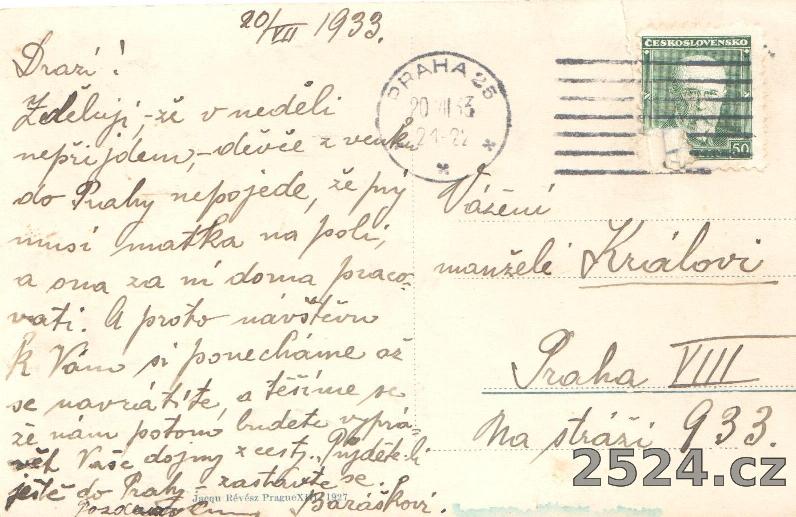 20/VII 1933.
Drazí!
Zděluji,-že v neděli
nepřijdem,-děvče z venku
do Prahy nepojede, že prý
musí matka na poli,
a ona za ní doma praco-
vati. A proto návštěvu
k Vám si ponecháme až
se navrátíte, a těšíme se
že nám potom budete vyprá-
vět Vaše dojmy z cesty. Přijdete-li
ještě do Prahy - zastavte se.
Baráškovi.
Jacqu Révész Prague 1927
PRAHA 25
20 VII 33
21-22
ČESKOSLOVENSKO
50
Vážení
manželé Královi
Praha VIII
Na stráži 933.
2524.cz